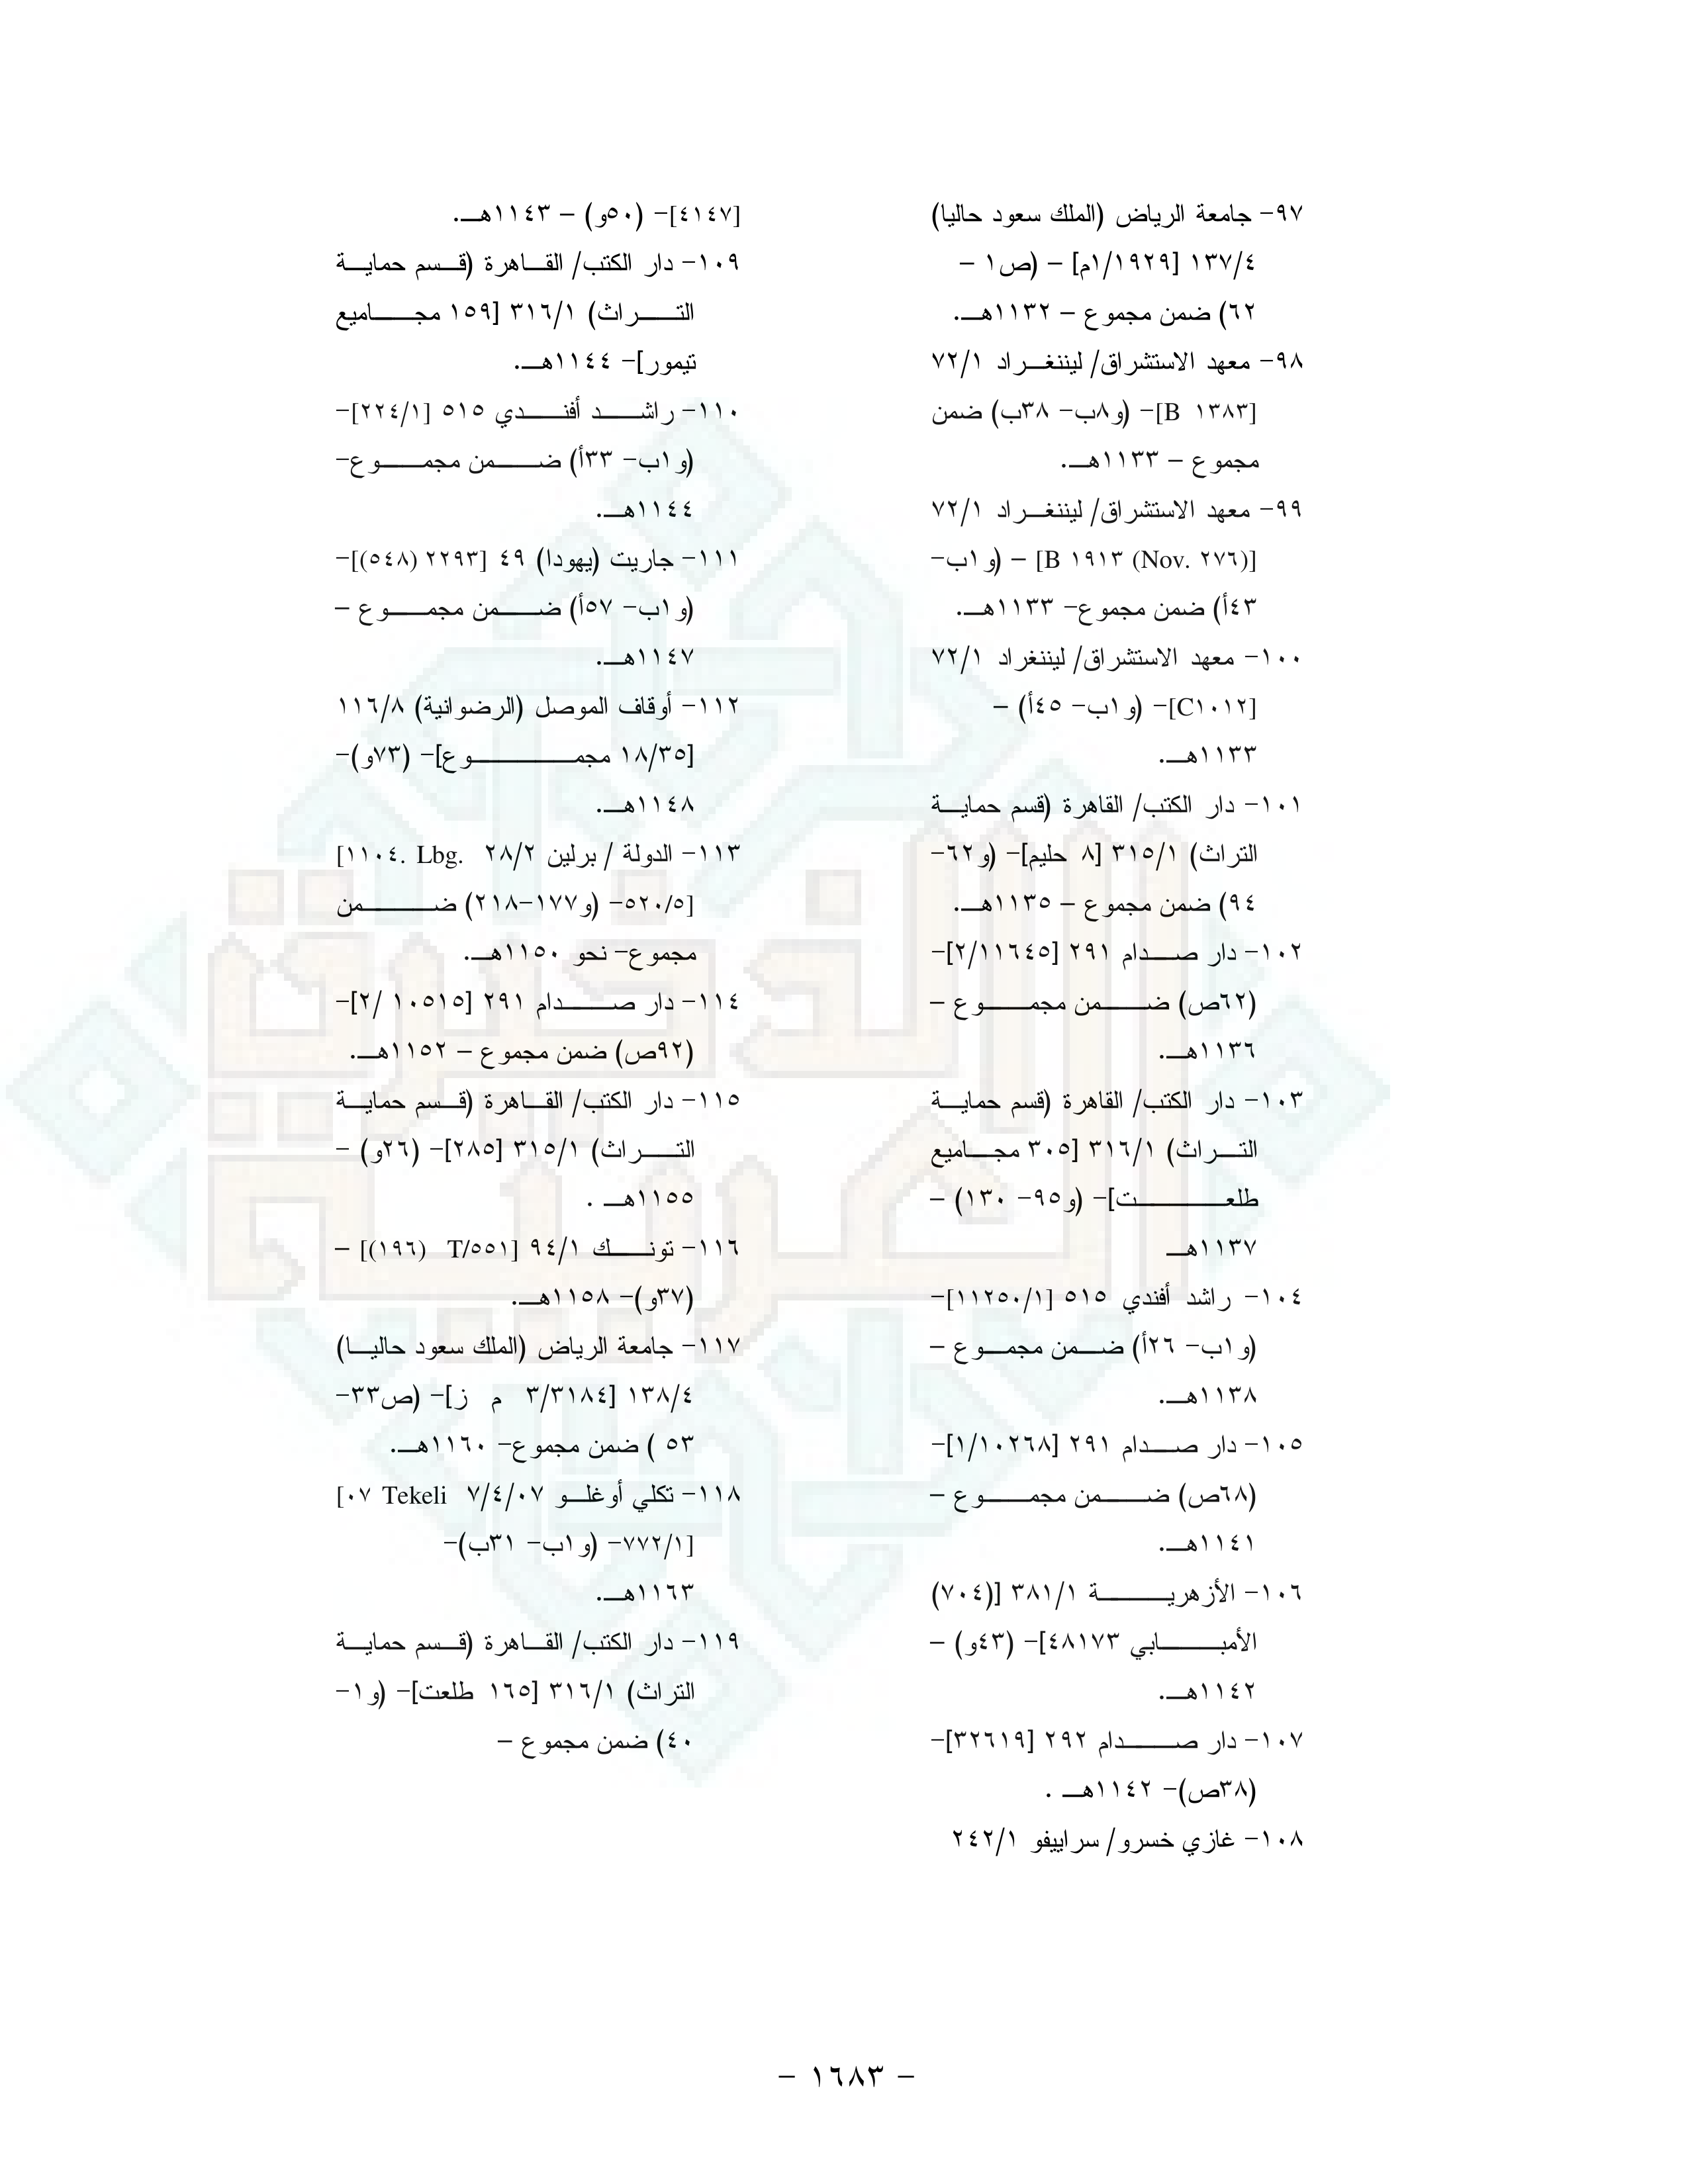 ٩٧- جامعة الرياض (الملك سعود حاليا)
١٣٧/٤ [١/١٩٢٩م] – (ص١ –
٦٢) ضمن مجموع – ١١٣٢هـ.
٩٨- معهد الاستشراق/ ليننغراد ٧٢/١
[B ١٣٨٣]- (و٨ب- ٣٨ب) ضمن
مجموع – ١١٣٣هـ.
٩٩- معهد الاستشراق/ ليننغراد ٧٢/١
[B ١٩١٣ (Nov. ٢٧٦)] – (و١ب-
٤٣أ) ضمن مجموع- ١١٣٣هـ.
١٠٠- معهد الاستشراق/ ليننغراد ٧٢/١
[C١٠١٢]- (و١ب- ٤٥أ) –
١١٣٣هـ.
١٠١- دار الكتب/ القاهرة (قسم حماية
التراث) ٣١٥/١ [٨ حليم]- (و٦٢-
٩٤) ضمن مجموع – ١١٣٥هـ.
١٠٢- دار صدام ٢٩١ [٢/١١٦٤٥]-
(٦٢ص) ضمن مجموع –
١١٣٦هـ.
١٠٣- دار الكتب/ القاهرة (قسم حماية
التراث) ٣١٦/١ [٣٠٥ مجاميع
طلعت]- (و٩٥- ١٣٠) –
١١٣٧هـ
١٠٤- راشد أفندي ٥١٥ [١١٢٥٠/١]-
(و١ب- ٢٦أ) ضمن مجموع –
١١٣٨هـ.
١٠٥- دار صدام ٢٩١ [١/١٠٢٦٨]-
(٦٨ص) ضمن مجموع –
١١٤١هـ.
١٠٦- الأزهرية ٣٨١/١ [(٧٠٤)
الأمبابي ٤٨١٧٣]- (٤٣و) –
١١٤٢هـ.
١٠٧- دار صدام ٢٩٢ [٣٢٦١٩]-
(٣٨ص)- ١١٤٢هـ .
١٠٨- غازي خسرو/ سراييفو ٢٤٢/١
[٤١٤٧]- (٥٠و) – ١١٤٣هـ.
١٠٩- دار الكتب/ القاهرة (قسم حماية
التراث) ٣١٦/١ [١٥٩ مجاميع
تيمور]- ١١٤٤هـ.
١١٠- راشد أفندي ٥١٥ [٢٢٤/١]-
(و١ب- ٣٣أ) ضمن مجموع-
١١٤٤هـ.
١١١- جاريت (يهودا) ٤٩ [٢٢٩٣ (٥٤٨)]-
(و١ب- ٥٧أ) ضمن مجموع –
١١٤٧هـ.
١١٢- أوقاف الموصل (الرضوانية) ١١٦/٨
[١٨/٣٥ مجموع]- (٧٣و)-
١١٤٨هـ.
١١٣- الدولة / برلين ٢٨/٢ [١١٠٤. Lbg.
٥٢٠/٥]- (و١٧٧-٢١٨) ضمن
مجموع- نحو ١١٥٠هـ.
١١٤- دار صدام ٢٩١ [١٠٥١٥ /٢]-
(٩٢ص) ضمن مجموع – ١١٥٢هـ.
١١٥- دار الكتب/ القاهرة (قسم حماية
التراث) ٣١٥/١ [٢٨٥]- (٢٦و) –
١١٥٥هـ .
١١٦- تونك ٩٤/١ [T/٥٥١ (١٩٦)] –
(٣٧و)- ١١٥٨هـ.
١١٧- جامعة الرياض (الملك سعود حاليا)
١٣٨/٤ [٣/٣١٨٤ م ز]- (ص٣٣-
٥٣ ) ضمن مجموع- ١١٦٠هـ.
١١٨- تكلي أوغلو ٧/٤/٠٧ [٠٧ Tekeli
٧٧٢/١]- (و١ب- ٣١ب)-
١١٦٣هـ.
١١٩- دار الكتب/ القاهرة (قسم حماية
التراث) ٣١٦/١ [١٦٥ طلعت]- (و١-
٤٠) ضمن مجموع –
- ١٦٨٣ -
الذخيرة
العربية